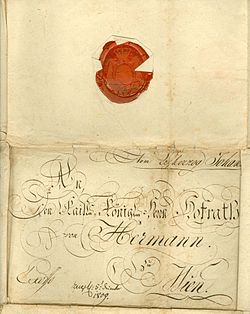 Von Erzherzog Johann
An
Den Kaisl. Königl. Herrn Hofrath
von Hormann.
Wien.
1809.